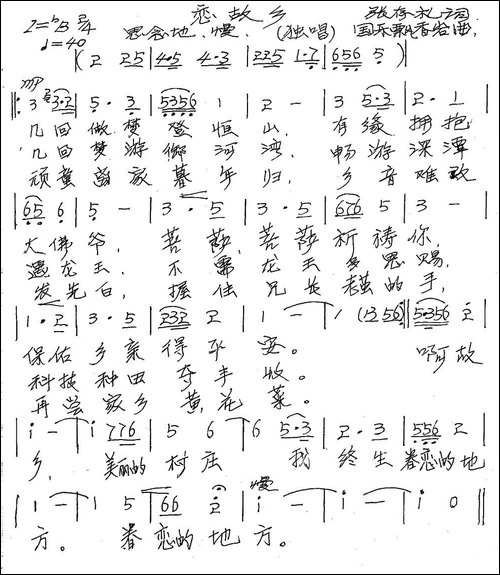 恋故乡
1=♭B 2/4 思念地、慢 (独唱) 张存礼 词
♩=40 国乐飘香岩 曲
(2 25 | 4·5 4·3 | 225 1·7 | 656 5)
mp
3 3·2 | 5·3 | 5356 1 | 2 - | 3 5·3 | 2·1 |
几回做梦登恒山，有缘拥抱
几回梦游 河湾，畅游深潭
顽童离家暮年归，乡音难改
65 6 | 5 - | 3·5 | 3·5 | 676 5 | 3 - |
大佛爷，菩萨，菩萨祈祷你，
遇龙王，不需龙王多恩赐，
发先白，握住兄长老茧的手，
| 1·2 | 3·5 | 232 2 | 1 - | 1 (1356) :| 5·356 2 |
保佑乡亲得平安。啊故
科技种田夺丰收。
再尝家乡黄花菜。
i - | i 776 | 5 6 | 6 5·3 | 2·3 | 556 2 |
乡，美丽的村庄 我终生眷恋的地
慢
| 1 - | 1 5 | 66 2 | i - | i - | i - | i 0 ||
方。眷恋的地方。